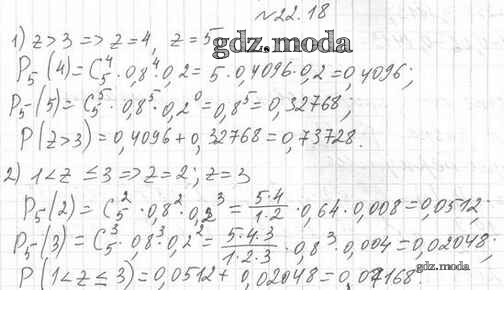 №22.18
1) z>3 => z=4, z=5
gdz.moda
P₅(4)=C₅⁴·0,8⁴·0,2=5·0,4096·0,2=0,4096;
P₅(5)=C₅⁵·0,8⁵·0,2⁰=0,8⁵=0,32768;
P(z>3)=0,4096+0,32768=0,73728.
2) 1<z≤3 => z=2; z=3
P₅(2)=C₅²·0,8²·0,2³=5·4/1·2·0,64·0,008=0,0512;
P₅(3)=C₅³·0,8³·0,2²=5·4·3/1·2·3·0,8³·0,004=0,02048;
gdz.moda
P(1<z≤3)=0,0512+0,02048=0,07168.